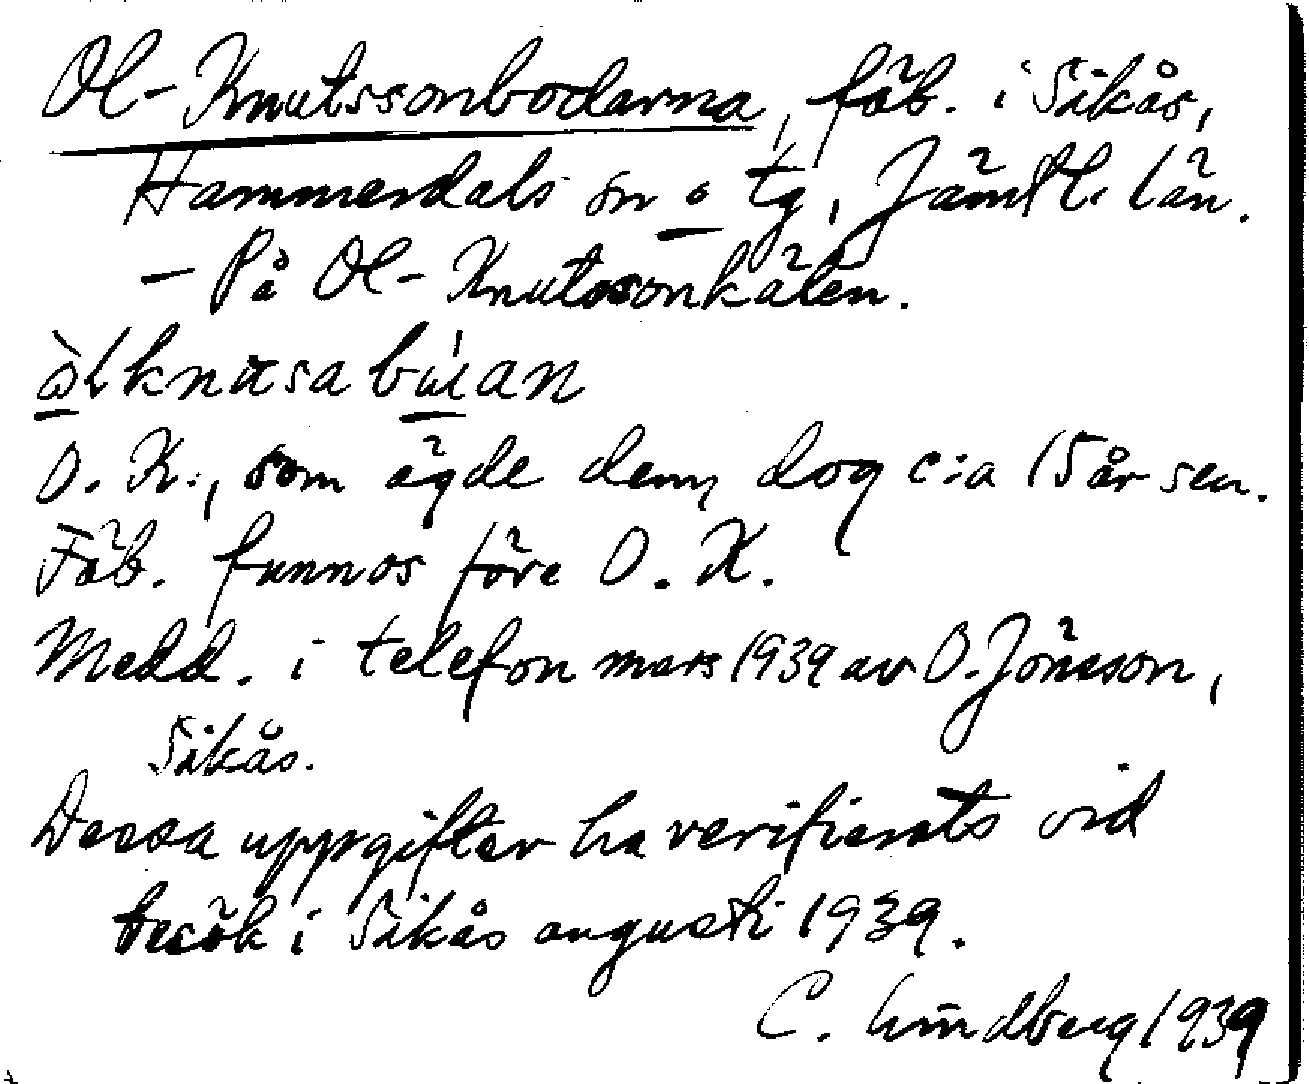 Ol-Knutssonbodarna, fäb. i Sikås,
Hammerdals sn o tg, Jämtl. län.
– På Ol-Knutssonkälen.
O. K., som ägde dem, dog c:a 15 år sen.
Fäb. funnos före O. K.
Medd. i telefon mars 1939 av O. Jönsson,
Sikås.
Dessa uppgifter ha verifierats vid
besök i Sikås augusti 1939.
C. Lindberg 1939